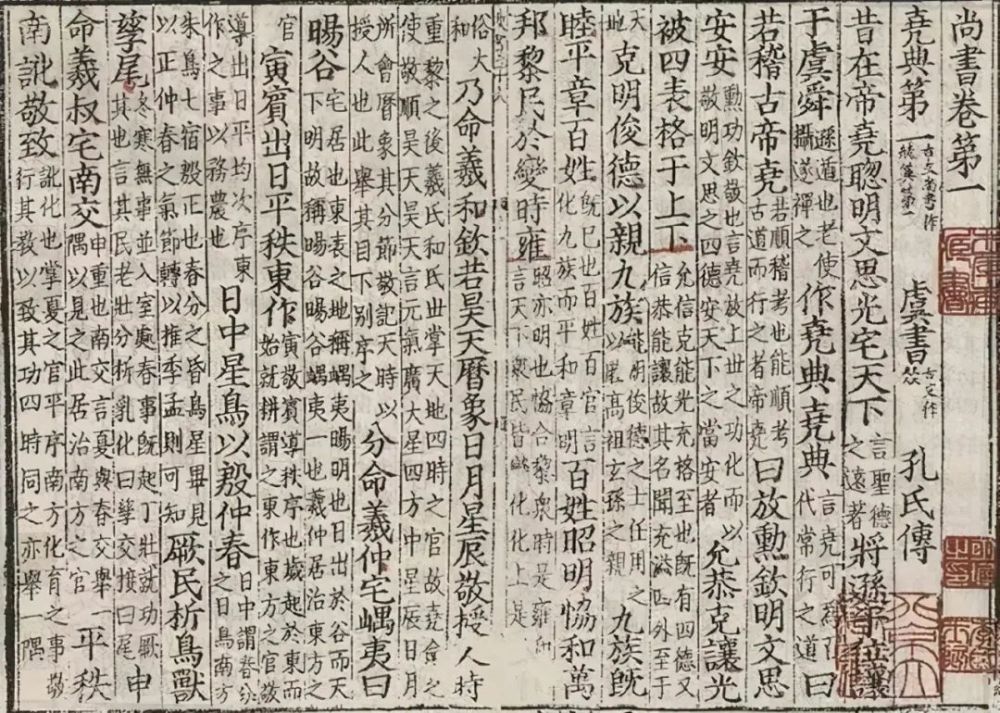 尚書卷第一
堯典第一古文尚書作虞書古文作孔氏傳
昔在帝堯聰明文思光宅天下言聖德之遠著將遜于位讓
于虞舜遜遁也老使攝遂禪之作堯典堯典言堯可爲百代常行之道曰
若稽古帝堯若順稽考也能順考古道而行之者帝堯曰放勳欽明文思
安安勳功欽敬也言堯放上世之功化而以敬明文思之四德安天下之當安者允恭克讓光
被四表格于上下允信克能光充格至也既有四德又信恭能讓故其名聞充溢四外至于
天地克明俊德以親九族能明俊德之士任用之以睦高祖玄孫之親九族既
睦平章百姓既已也百姓百官言化九族而平和章明百姓昭明協和萬
邦黎民於變時雍昭亦明也協合黎衆時是雍和也言天下衆民皆變化化上是
俗大和乃命羲和欽若昊天曆象日月星辰敬授人時
重黎之後羲氏和氏世掌天地四時之官故堯命之使敬順昊天昊天言元氣廣大星四方中星辰日月
所會曆象其分節敬記天時以授人也此舉其目下別序之分命羲仲宅嵎夷曰
暘谷宅居也東表之地稱嵎夷暘明也日出於谷而天下明故稱暘谷暘谷嵎夷一也羲仲居治東方之
官寅賓出日平秩東作寅敬賓導秩序也歲起於東而始就耕謂之東作東方之官敬
導出日平均次序東作之事以務農也日中星鳥以殷仲春日中謂春分之日鳥南方
朱鳥七宿殷正也春分之昏鳥星畢見以正仲春之氣節轉以推季孟則可知厥民析鳥獸
孳尾冬寒無事並入室處春事既起丁壯就功厥其也言其民老壯分析乳化曰孳交接曰尾申
命羲叔宅南交申重也南交言夏與春交舉一隅以見之此居治南方之官平秩
南訛敬致訛化也掌夏之官平序南方化育之事敬行其教以致其功四時同之亦舉一隅